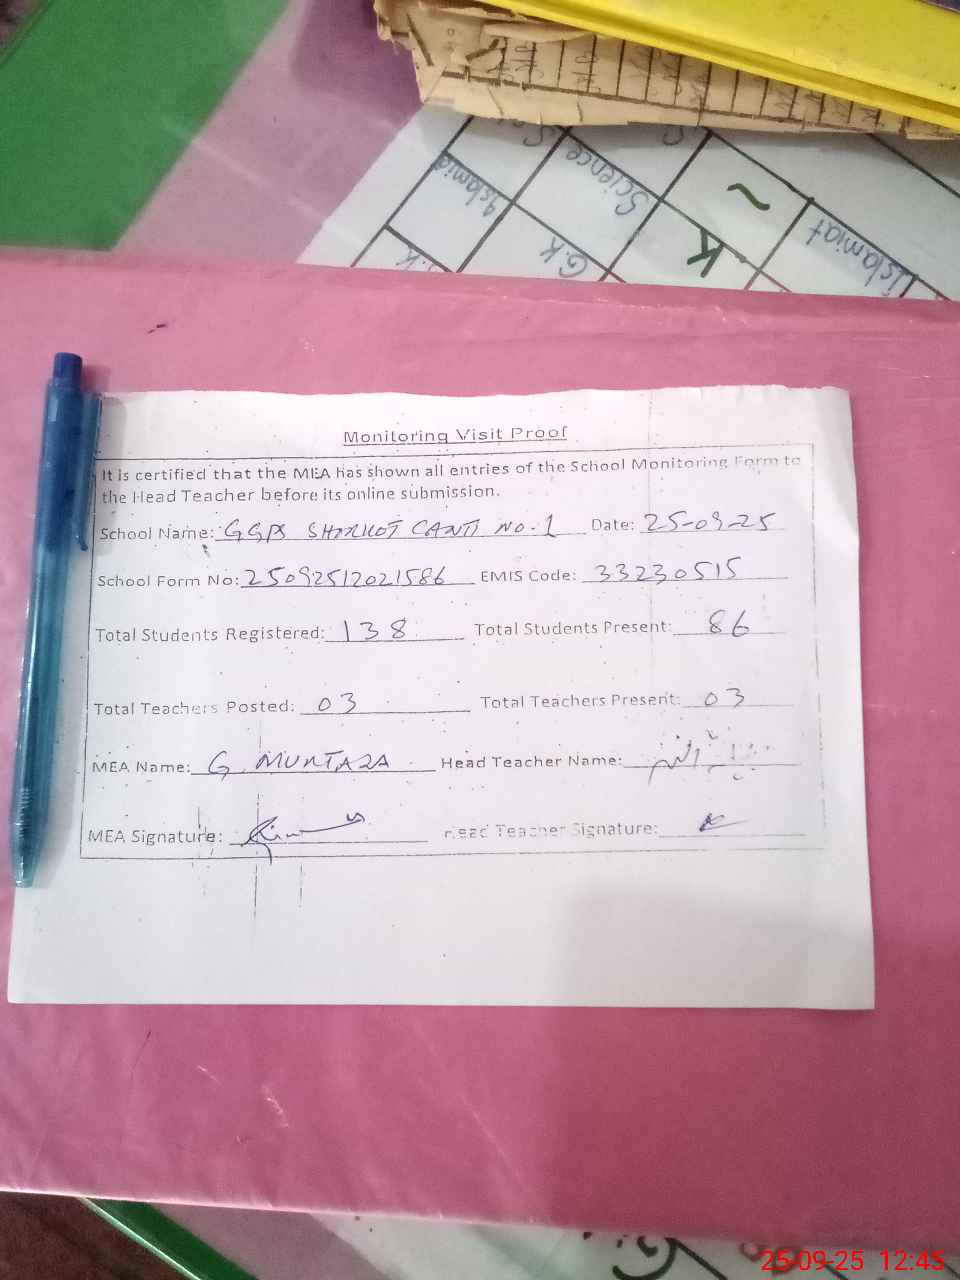 Science
Islamiat
G.K
K
Islamiat
Monitoring Visit Proof
It is certified that the MEA has shown all entries of the School Monitoring Form to
the Head Teacher before its online submission.
School Name: GGPS SHORKOT CANTT NO.1 Date: 25-09-25
School Form No: 25092512021586 EMIS Code: 33230515
Total Students Registered: 138 Total Students Present: 86
Total Teachers Posted: 03 Total Teachers Present: 03
MEA Name: G. MURTAZA Head Teacher Name:
MEA Signature: Head Teacher Signature:
25-09-25 12:45